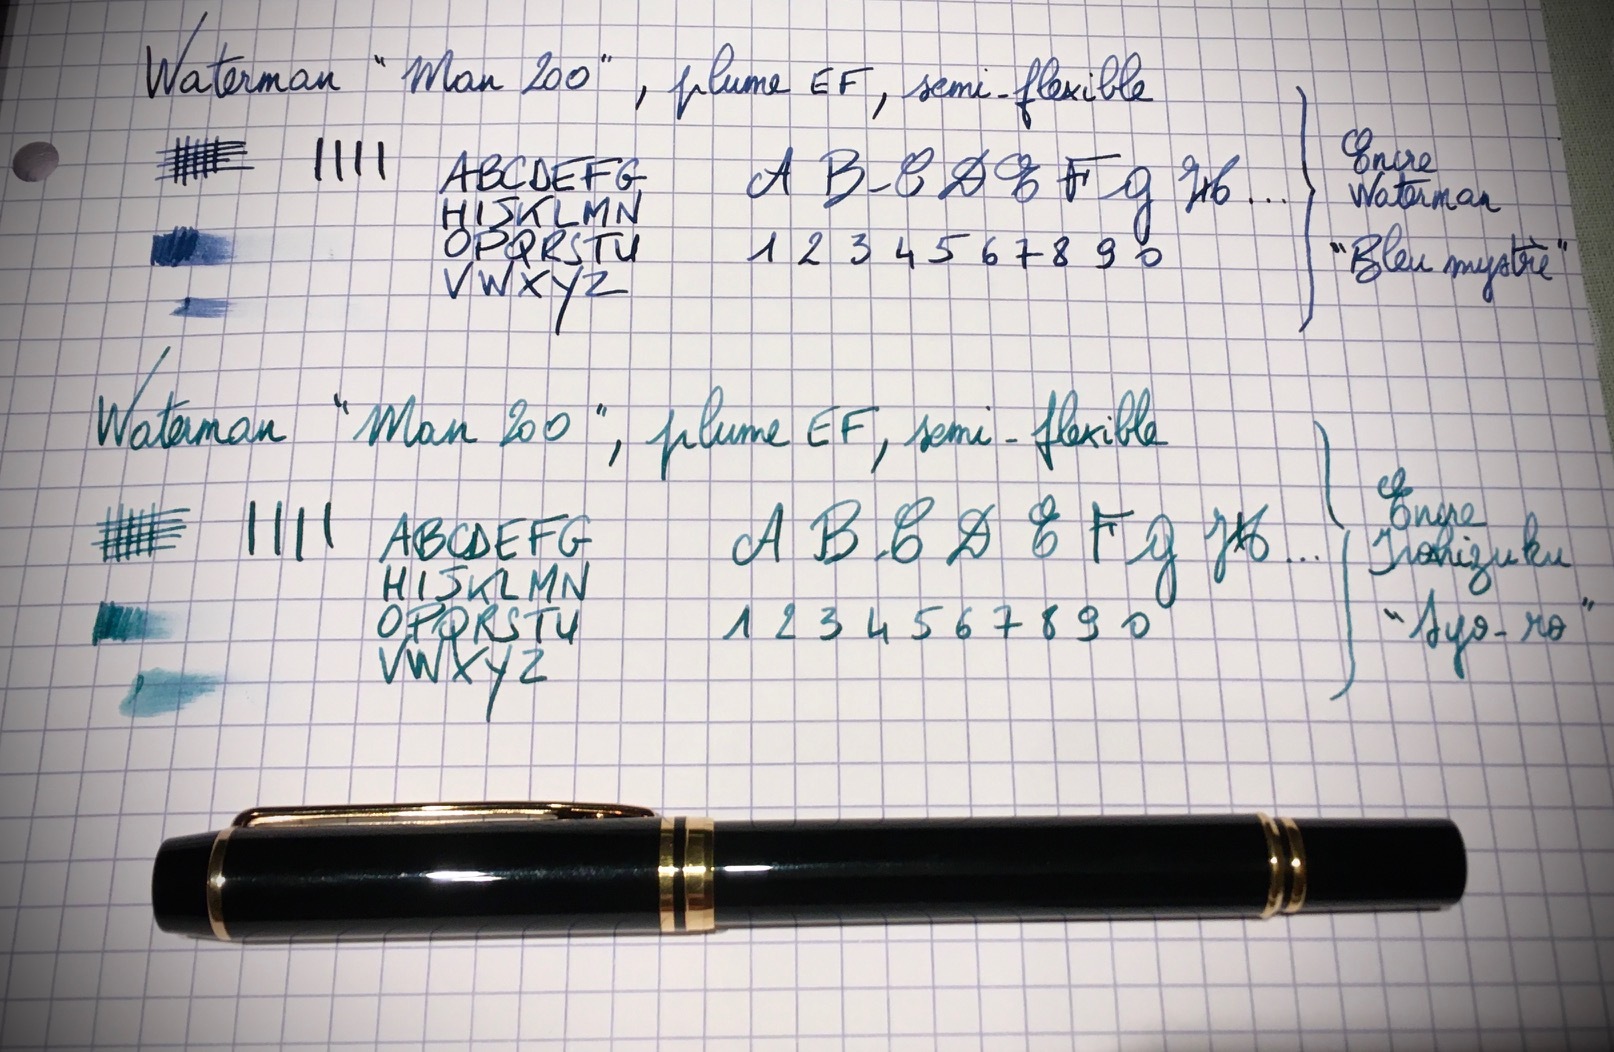 Waterman "Man 200", plume EF, semi-flexible
ABCDEFG
HIJKLMN
OPQRSTU
VWXYZ
A B C D E F G H...
1 2 3 4 5 6 7 8 9 0
Encre
Waterman
"Bleu mystère"
Waterman "Man 200", plume EF, semi-flexible
ABCDEFG
HIJKLMN
OPQRSTU
VWXYZ
A B C D E F G H...
1 2 3 4 5 6 7 8 9 0
Encre
Iroshizuku
"Syo-ro"